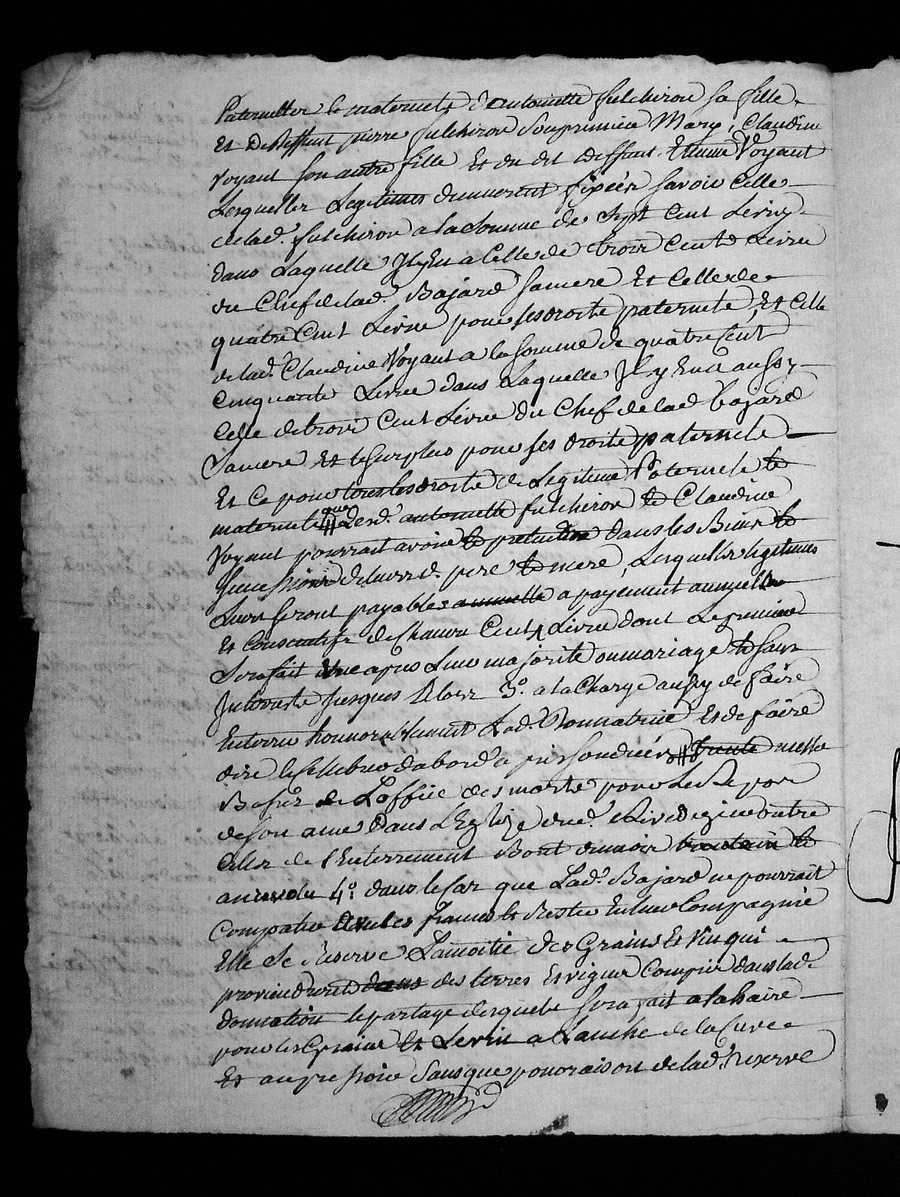 Paternelles & maternels d'antoinette fulchiron sa fille
Et de deffunt pierre fulchiron Son premier Mary, Claudine
Voyant son autre fille Et du dit deffunt Etienne Voyant
Lesquelles Legitimes demeurent fixées savoir celle
de lad. fulchiron a la Somme de Sept Cent Livres
dans Laquelle Il y En a Celle de trois Cent Livres
du Chef de lad. Bajard sa mere Et Celle de
quatre Cent Livres pour ses droits paternels, Et Celle
de lad. Claudine Voyant a la somme de quatre Cent
Cinquante Livres dans Laquelle Il y En a aussy
Celle de trois Cent Livres du Chef de lad. Bajard
Sa mere Et le Surplus pour ses droits paternels
Et Ce pour tous les droits de Legitime Paternels &
maternels que Lesd. antoinette fulchiron & Claudine
Voyant pourrait avoir & pretendre dans les Biens &
successions de leursd. pere & mere, Lesquelles legitimes
Leurs seront payables a payement annuels
Et Consecutifs de Chacun Cent Livres dont Le premier
Sera fait Une après Leur majorité ou mariage & sans
Interests jusques Alors 3.º a la Charge aussy de faire
Enterrer honnorablement Lad. Donnatrice Et de faire
dire & Celebrer d'abord après son décès trente messes
Basses de L'office des morts pour Le Repos
de son ame Dans L'Eglise dud. outre
Celles de l'Enterrement
4.º dans le Cas que Lad. Bajard ne pourrait
Compatir Avec les & Rester En leur Compagnie
Elle Se Reserve La moitié des Grains Et Vin qui
proviendront dans des terres Et vignes Compris dans lad.
donnation le partage desquels sera fait a
pour les Grains Et Le vin a L'anche de la Cuve
Et au pressoir Sans que pour raison de lad. reserve